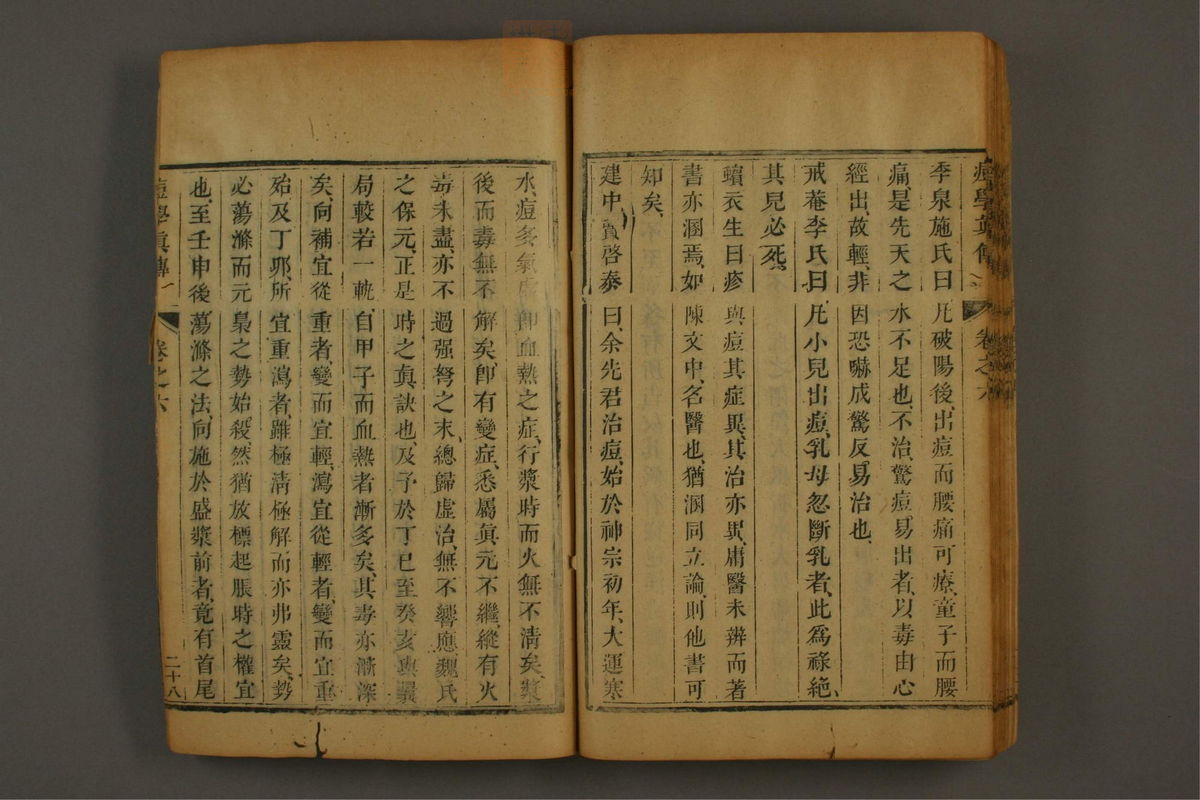 痘學真傳 卷之六
李泉施氏曰、凡破陽後、出痘而腰痛可療、童子而腰
痛、是先天之水不足也、不治、驚痘易出者、以毒由心
經出、故輕、非因恐嚇成驚、反易治也、
戒菴李氏曰、凡小兒出痘、乳母忽斷乳者、此爲祿絕、
其兒必死、
蠙衣生曰、疹與痘其症異、其治亦異、庸醫未辨而著
書亦溷焉、如陳文中、名醫也、猶溷同立論、則他書可
知矣、
建中、賀啓泰曰、余先君治痘、始於神宗初年、大運寒
水、痘多氣虛、卽血熱之症、行漿時而火無不清矣、漿
後而毒無不解矣、卽有變症、悉屬眞元不繼、縱有火
毒未盡、亦不過强弩之末、總歸虛治、無不響應、魏氏
之保元、正是時之眞訣也、及予於丁巳至癸亥、與曩
局較若一軌、自甲子而血熱者漸多矣、其毒亦漸深
矣、向補宜從重者、變而宜輕、瀉宜從輕者、變而宜重、
殆及丁卯、所宜重瀉者、雖極清極解、而亦弗靈矣、勢
必蕩滌而元梟之勢始殺、然猶放標起脹時之權宜
也、至壬申後、蕩滌之法、向施於盛漿前者、竟有首尾
痘學眞傳 卷之六 二十八